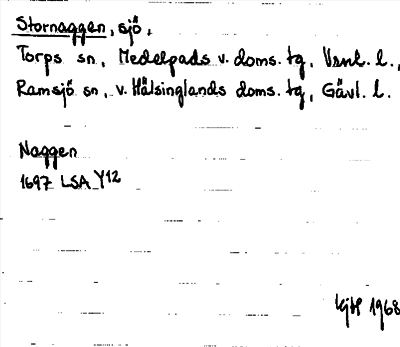 Stornaggen, sjö,
Torps sn, Medelpads v. doms. tg, Vsnl. l.,
Ramsjö sn, v. Hälsinglands doms. tg, Gävl. l.
Naggen
1697 LSA Y12
1968